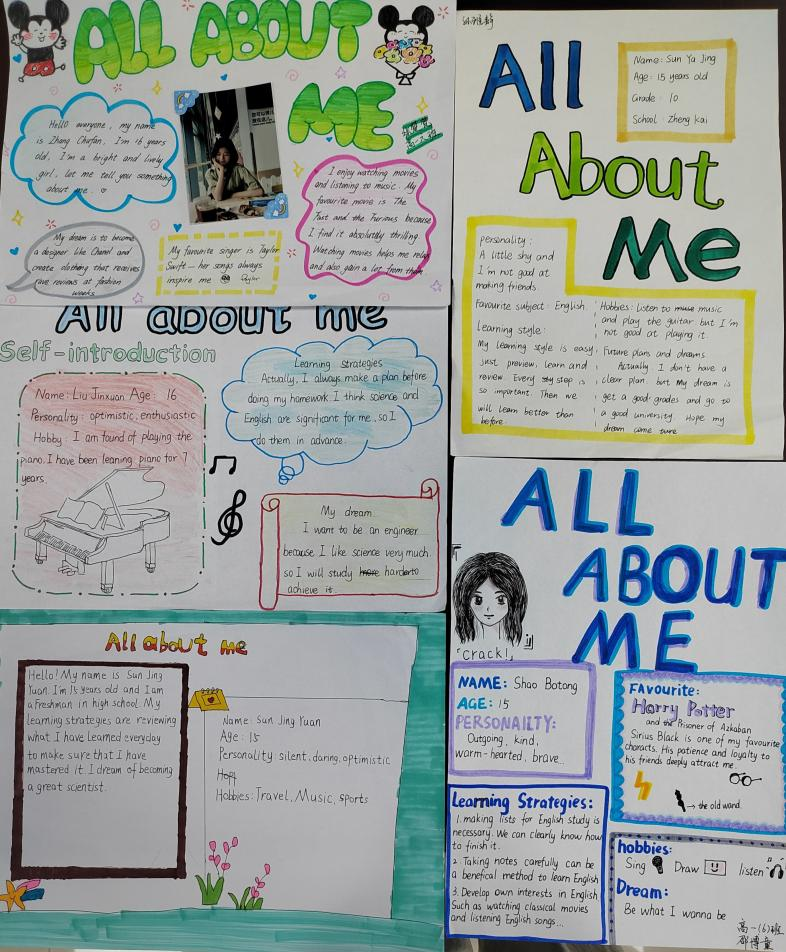 ALL ABOUT
ME
Hello everyone, my name
is Zhang Chufan, I'm 16 years
old, I'm a bright and lively
girl, let me tell you something
about me.
I enjoy watching movies
and listening to music. My
favourite movie is The
Fast and the Furious because
I find it absolutely thrilling.
Watching movies helps me relax
and also gain a lot from them
My dream is to become
a designer like Chanel and
create clothing that receives
rave reviews at fashion
weeks
My favourite singer is Taylor
Swift — her songs always
inspire me
Taylor
All
About
Me
Name: Sun Ya Jing
Age: 15 years old
Grade: 10
School: Zheng Kai
personality:
A little shy and
I'm not good at
making friends.
Favourite subject: English
Learning style:
My learning style is easy,
just preview, learn and
review. Every step is
so important. Then we
will learn better than
before.
Hobbies: listen to music
and play the guitar but I'm
not good at playing it.
Future plans and dreams
Actually I don't have a
clear plan but My dream is
get a good grades and go to
a good university. Hope my
dream come ture
All about me
Self-introduction
Name: Liu Jinxuan Age: 16
Personality: optimistic, enthusiastic
Hobby: I am found of playing the
piano. I have been leaning piano for 7
years.
Learning strategies
Actually, I always make a plan before
doing my homework I think science and
English are significant for me, so I
do them in advance.
My dream
I want to be an engineer
because I like science very much.
so I will study harder to
achieve it.
All about me
Hello! My name is Sun Jing
Yuan. I'm 15 years old and I am
a freshman in high school. My
learning strategies are reviewing
what I have learned everyday
to make sure that I have
mastered it. I dream of becoming
a great scientist.
Name: Sun Jing Yuan
Age: 15
Personality: silent, daring, optimistic
Hobbies: Travel, Music, sports
ALL
ABOUT
ME
「Crack!」
NAME: Shao Botong
AGE: 15
PERSONAlITY:
Outgoing, kind,
warm-hearted, brave...
FAVOURITE:
Harry Potter
and the Prisoner of Azkaban
Sirius Black is one of my favourite
characts. His patience and loyalty to
his friends deeply attract me.
→ the old wand.
Learning Strategies:
1. making lists for English study is
necessary. We can clearly know how
to finish it.
2. Taking notes carefully can be
a benefical method to learn English
3. Develop own interests in English
Such as watching classical movies
and listening English songs...
hobbies:
Sing Draw listen
Dream:
Be what I wanna be
高一(6)班
邵博童